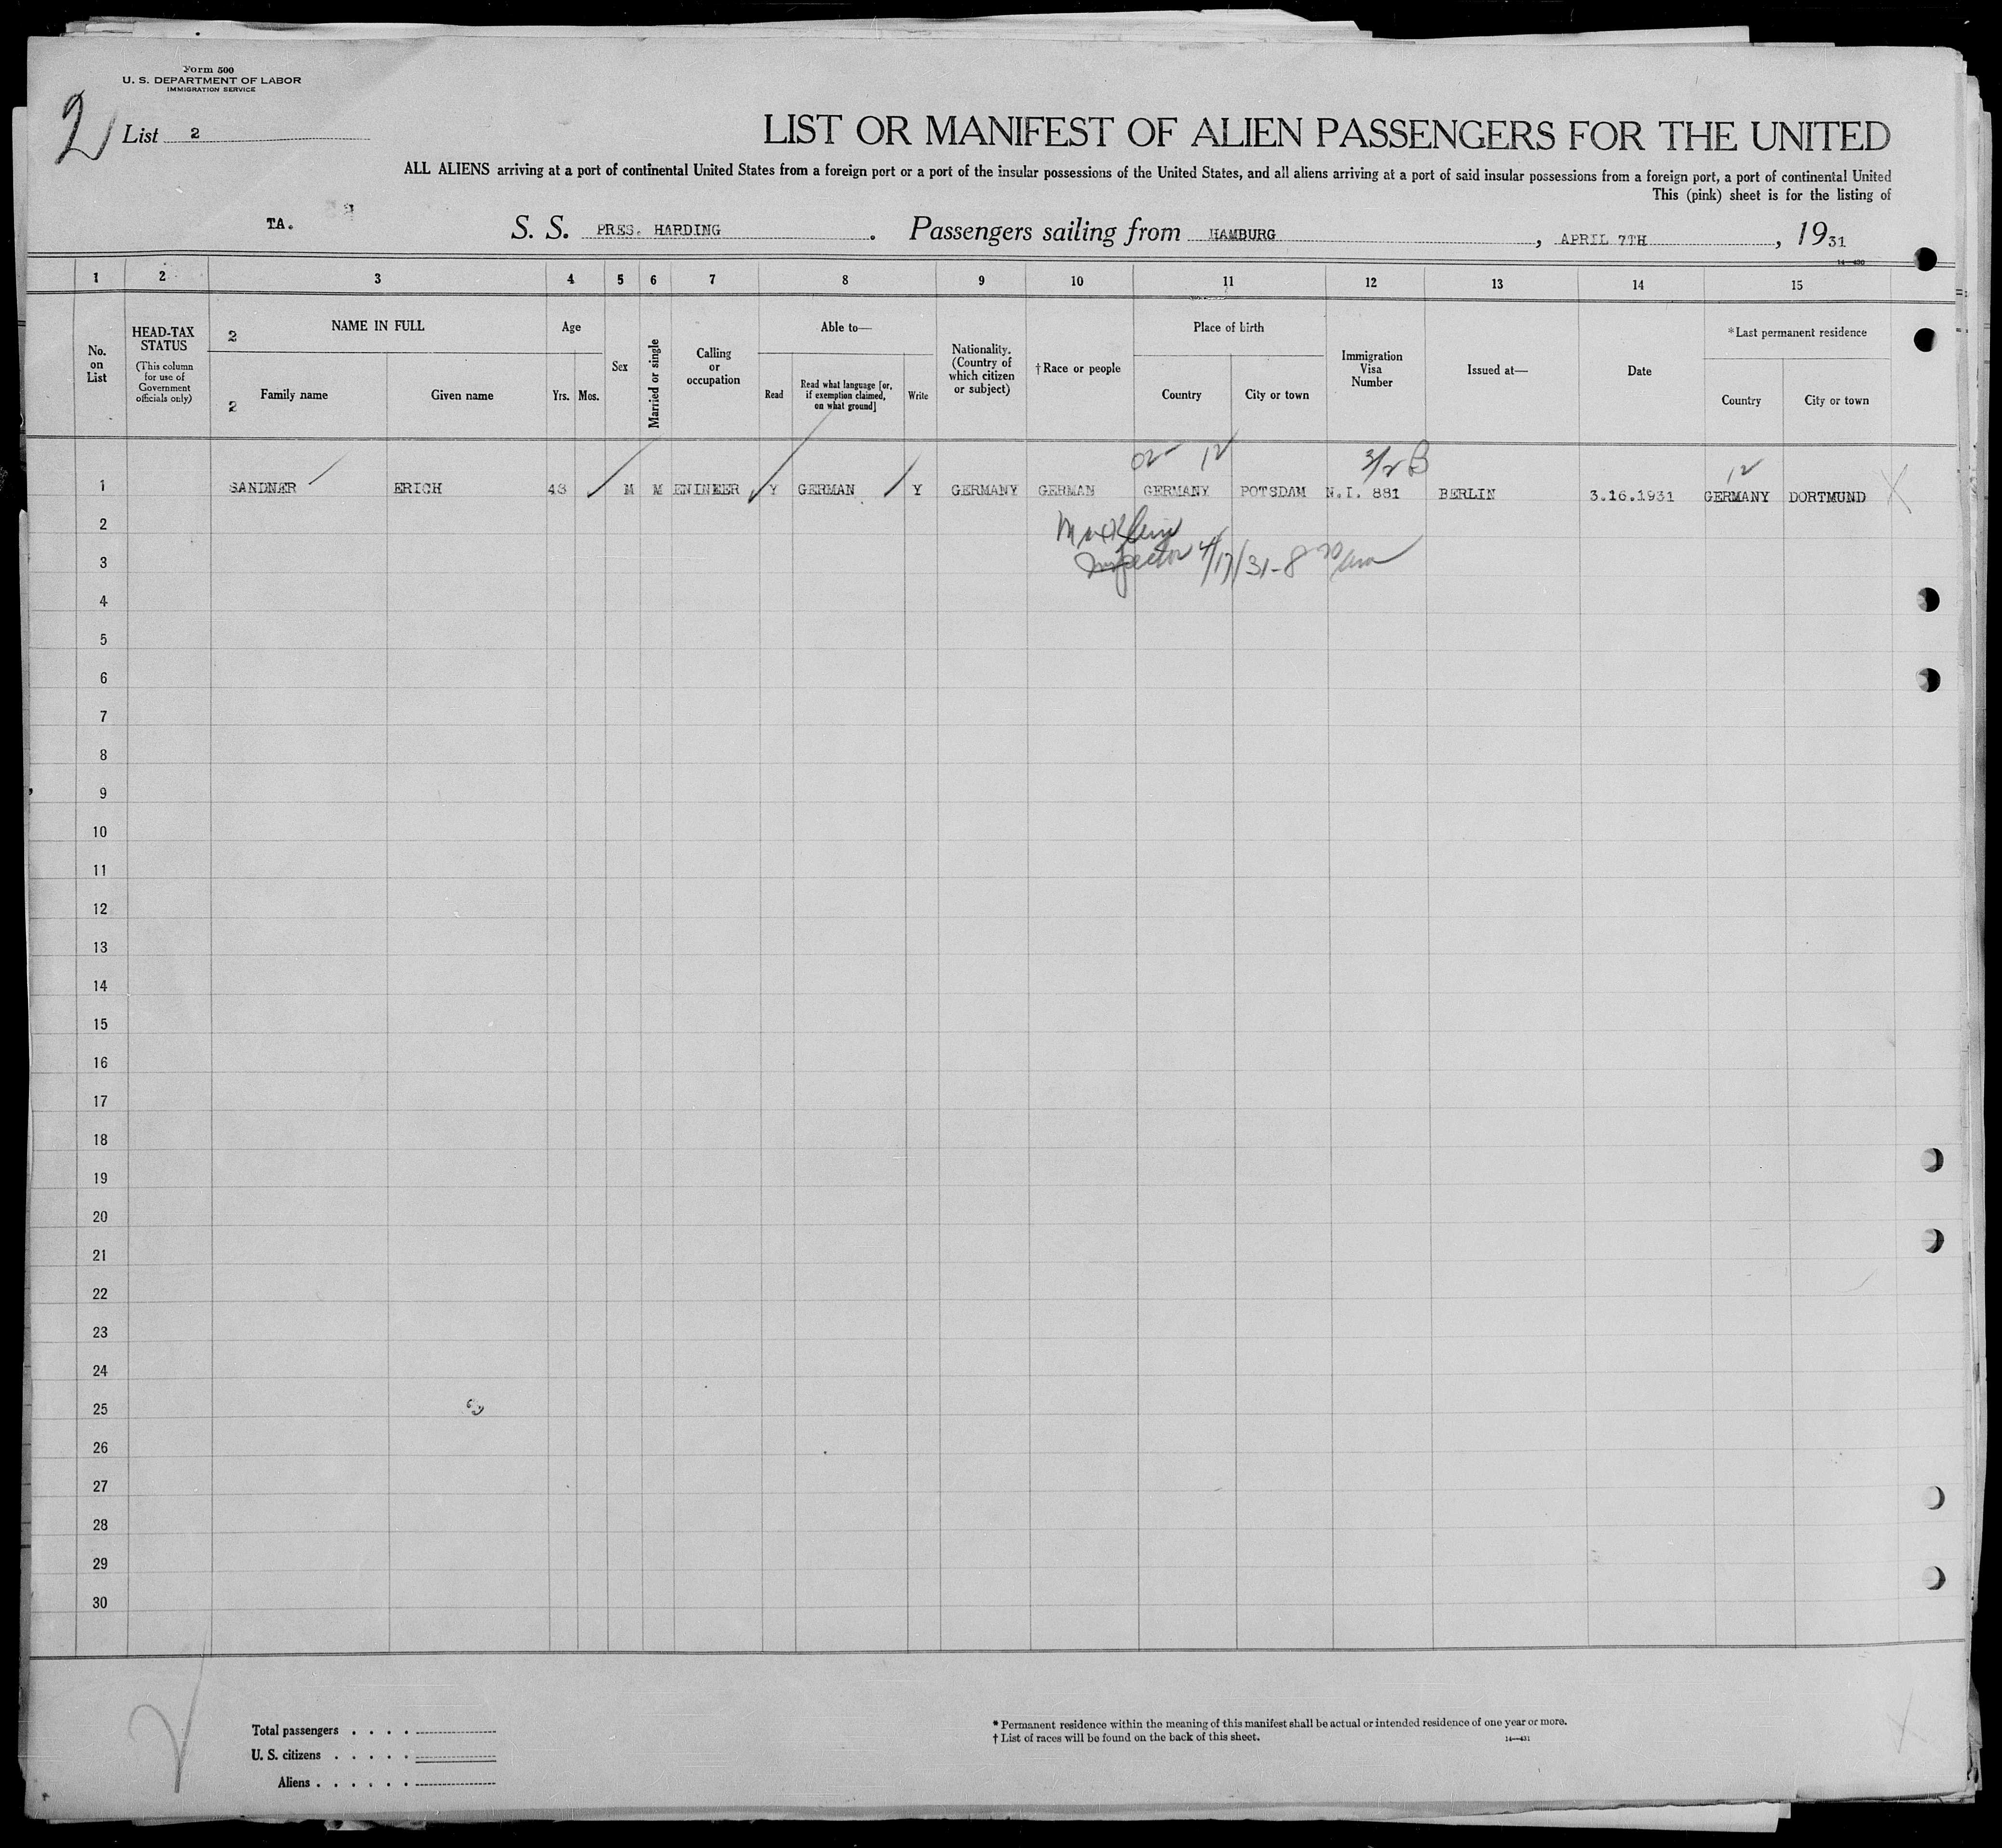 Form 500
U. S. DEPARTMENT OF LABOR
IMMIGRATION SERVICE
2
List 2
LIST OR MANIFEST OF ALIEN PASSENGERS FOR THE UNITED
ALL ALIENS arriving at a port of continental United States from a foreign port or a port of the insular possessions of the United States, and all aliens arriving at a port of said insular possessions from a foreign port, a port of continental United
This (pink) sheet is for the listing of
TA. S. S. PRES. HARDING. Passengers sailing from HAMBURG, APRIL 7TH, 1931
14—430
1 2 3 4 5 6 7 8 9 10 11 12 13 14 15
No. on List
HEAD-TAX STATUS
(This column for use of Government officials only)
2 NAME IN FULL
2 Family name Given name
Age
Yrs. Mos.
Sex
Married or single
Calling or occupation
Able to—
Read
Read what language [or, if exemption claimed, on what ground]
Write
Nationality. (Country of which citizen or subject)
†Race or people
Place of birth
Country City or town
Immigration Visa Number
Issued at—
Date
*Last permanent residence
Country City or town
02 12 3/2 B 12
1 SANDNER ERICH 43 M M ENINEER Y GERMAN Y GERMANY GERMAN GERMANY POTSDAM N.I. 881 BERLIN 3.16.1931 GERMANY DORTMUND X
2 Max Klein
3 Inspector 4/17/31 - 8 30 am
4
5
6
7
8
9
10
11
12
13
14
15
16
17
18
19
20
21
22
23
24
25
26
27
28
29
30
2
Total passengers . . . .
U. S. citizens . . . . .
Aliens . . . . . .
* Permanent residence within the meaning of this manifest shall be actual or intended residence of one year or more.
† List of races will be found on the back of this sheet.
14—431
X